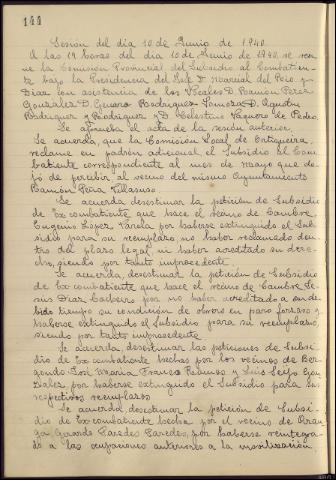 144
Sesion del dia 10 de Junio de 1940.
A las 19 horas del dia 10 de Junio de 1940, se reu-
ne la Comisión Provincial del Subsidio al Combatien-
te bajo la Presidencia del Sr. D. Marcial del Peso y
Diaz con asistencia de los Vocales D. Ramon Perez
Gonzalez D. Genaro Rodriguez Someza D. Agustin
Rodriguez y Rodriguez y D. Celestino Vaquero de Pedro.
Se aprueba el acta de la sesión anterior.
Se acuerda, que la Comisión Local de Ortigueira
reclame en padrón adicional el Subsidio al Com-
batiente correspondiente al mes de Mayo que de-
jó de percibir al vecino del mismo Ayuntamiento
Ramón Peña Villasuso.
Se acuerda desestimar la petición de Subsidio
de Ex-combatiente que hace el vecino de Cambre,
Eugenio Lopez Varela por haberse extinguido el Sub-
sidio para su reemplazo no haber reclamado den-
tro del plazo legal ni haber acreditado su dere-
cho, siendo por tanto improcedente.
Se acuerda, desestimar la petición de Subsidio
de Ex-combatiente que hace el vecino de Cambre, Je-
sús Diaz por no haber acreditado a su de-
bido tiempo su condición de obrero en paro forzoso y
haberse extinguido el Subsidio para su reemplazo,
siendo por tanto improcedente.
Se acuerda desestimar las peticiones de Subsi-
dio de Ex-combatiente hechas por los vecinos de Ber-
gondo José Maria Franco y Luis Seijo Gon-
zalez por haberse extinguido el Subsidio para sus
respectivos reemplazos.
Se acuerda desestimar la petición de Subsi-
dio de Ex-combatiente hecha por el vecino de
Gerardo Paredes Paredes, por haberse reintegra-
do a las ocupaciones anteriores a la movilización